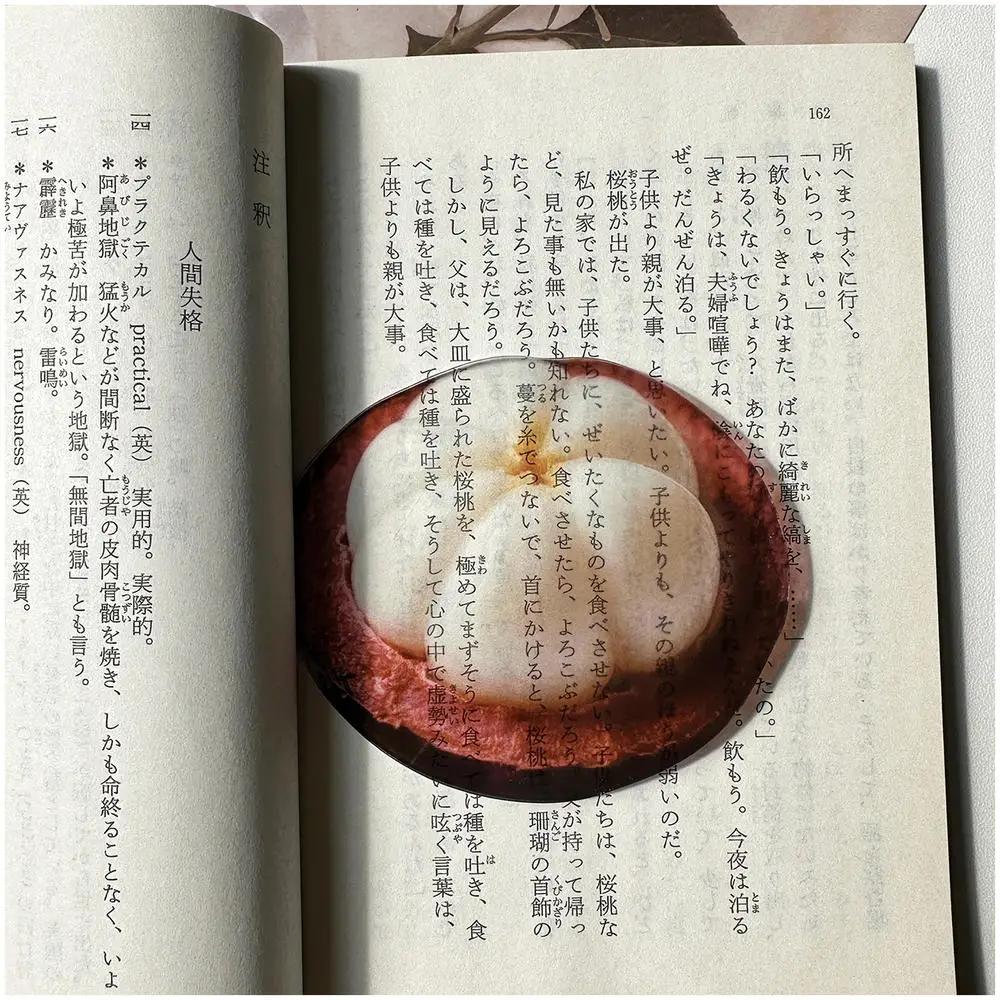 162
所へまっすぐに行く。
「いらっしゃい。」
「飲もう。きょうはまた、ばかに綺麗な縞を、……」
「わるくないでしょう？　あなたの ていたの。」
「きょうは、夫婦喧嘩でね、陰にこもってやりきれねえんだ。飲もう。今夜は泊る
ぜ。だんぜん泊る。」
子供より親が大事、と思いたい。子供よりも、その親のほうが弱いのだ。
桜桃が出た。
私の家では、子供たちに、ぜいたくなものを食べさせない。子供たちは、桜桃な
ど、見た事も無いかも知れない。食べさせたら、よろこぶだろう。父が持って帰っ
たら、よろこぶだろう。蔓を糸でつないで、首にかけると、桜桃は、珊瑚の首飾の
ように見えるだろう。
しかし、父は、大皿に盛られた桜桃を、極めてまずそうに食べては種を吐き、食
べては種を吐き、食べては種を吐き、そうして心の中で虚勢みたいに呟く言葉は、
子供よりも親が大事。
注釈
人間失格
一四　＊プラクテカル　practical（英）　実用的。実際的。
＊阿鼻地獄　猛火などが間断なく亡者の皮肉骨髄を焼き、しかも命終ることなく、いよ
いよ極苦が加わるという地獄。「無間地獄」とも言う。
一六　＊霹靂　かみなり。雷鳴。
一七　＊ナアヴァスネス　nervousness（英）　神経質。